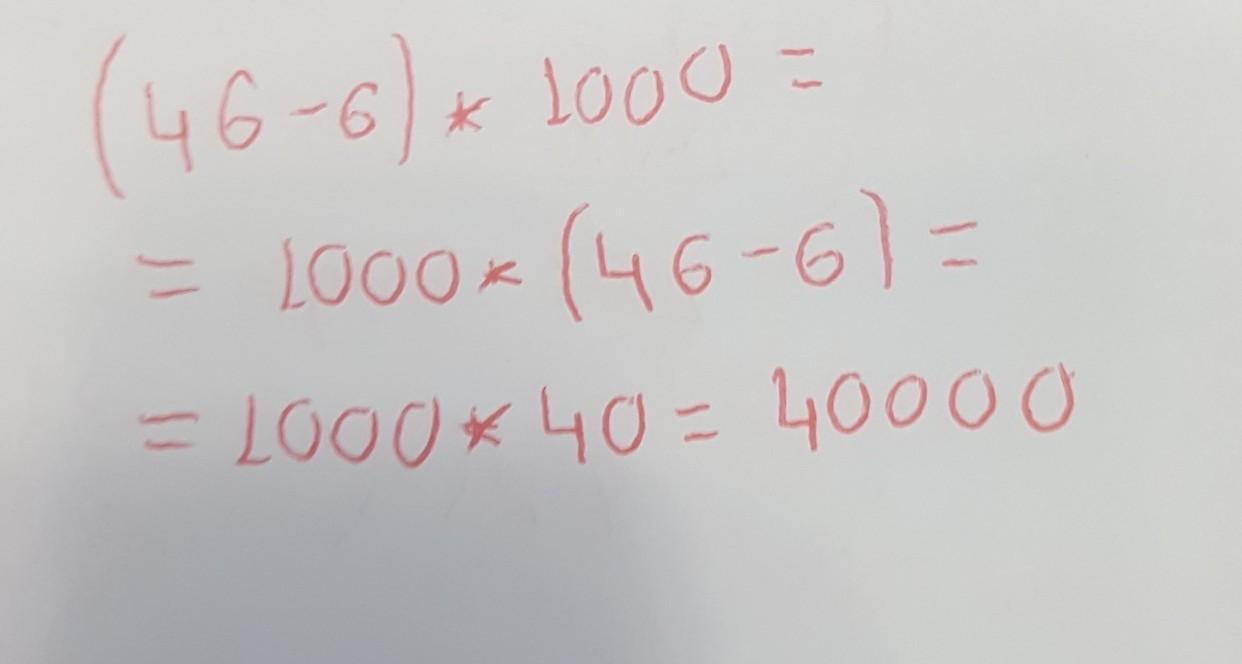 (46-6) * 1000 =
= 1000 * (46-6) =
= 1000 * 40 = 40000